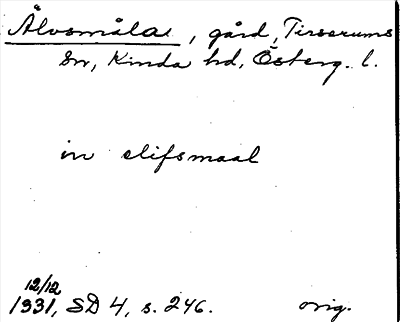 Älvsmåla, gård, Tirserums
sn, Kinda hd, Österg. l.
in elifsmaal
12/12
1331, SD 4, s. 246.
orig.